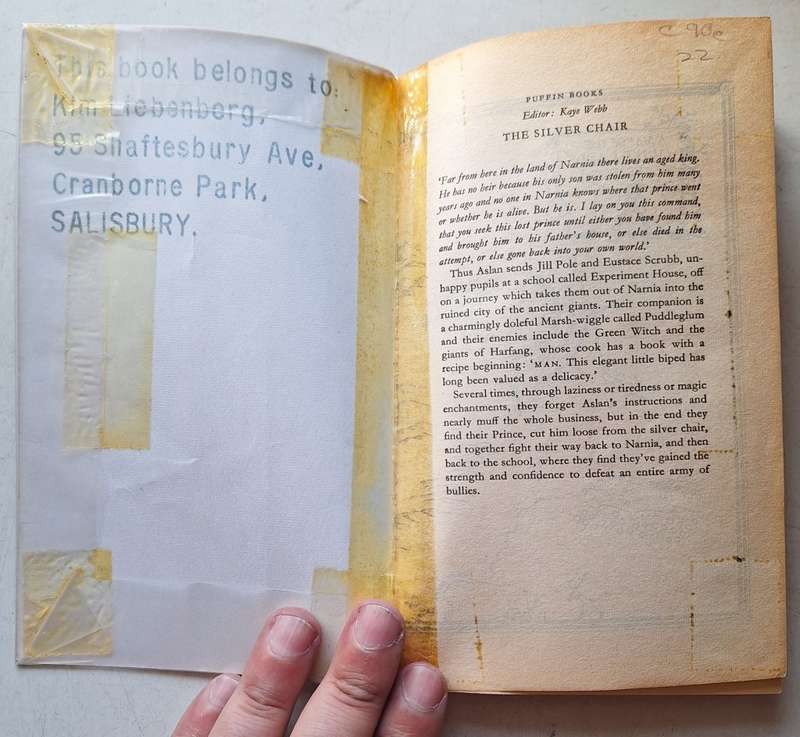 This book belongs to:
Kim Liebenberg,
95 Shaftesbury Ave,
Cranborne Park,
SALISBURY.
C 90c
22
PUFFIN BOOKS
Editor: Kaye Webb
THE SILVER CHAIR
'Far from here in the land of Narnia there lives an aged king.
He has no heir because his only son was stolen from him many
years ago and no one in Narnia knows where that prince went
or whether he is alive. But he is. I lay on you this command,
that you seek this lost prince until either you have found him
and brought him to his father's house, or else died in the
attempt, or else gone back into your own world.'
Thus Aslan sends Jill Pole and Eustace Scrubb, un-
happy pupils at a school called Experiment House, off
on a journey which takes them out of Narnia into the
ruined city of the ancient giants. Their companion is
a charmingly doleful Marsh-wiggle called Puddleglum
and their enemies include the Green Witch and the
giants of Harfang, whose cook has a book with a
recipe beginning: 'MAN. This elegant little biped has
long been valued as a delicacy.'
Several times, through laziness or tiredness or magic
enchantments, they forget Aslan's instructions and
nearly muff the whole business, but in the end they
find their Prince, cut him loose from the silver chair,
and together fight their way back to Narnia, and then
back to the school, where they find they've gained the
strength and confidence to defeat an entire army of
bullies.